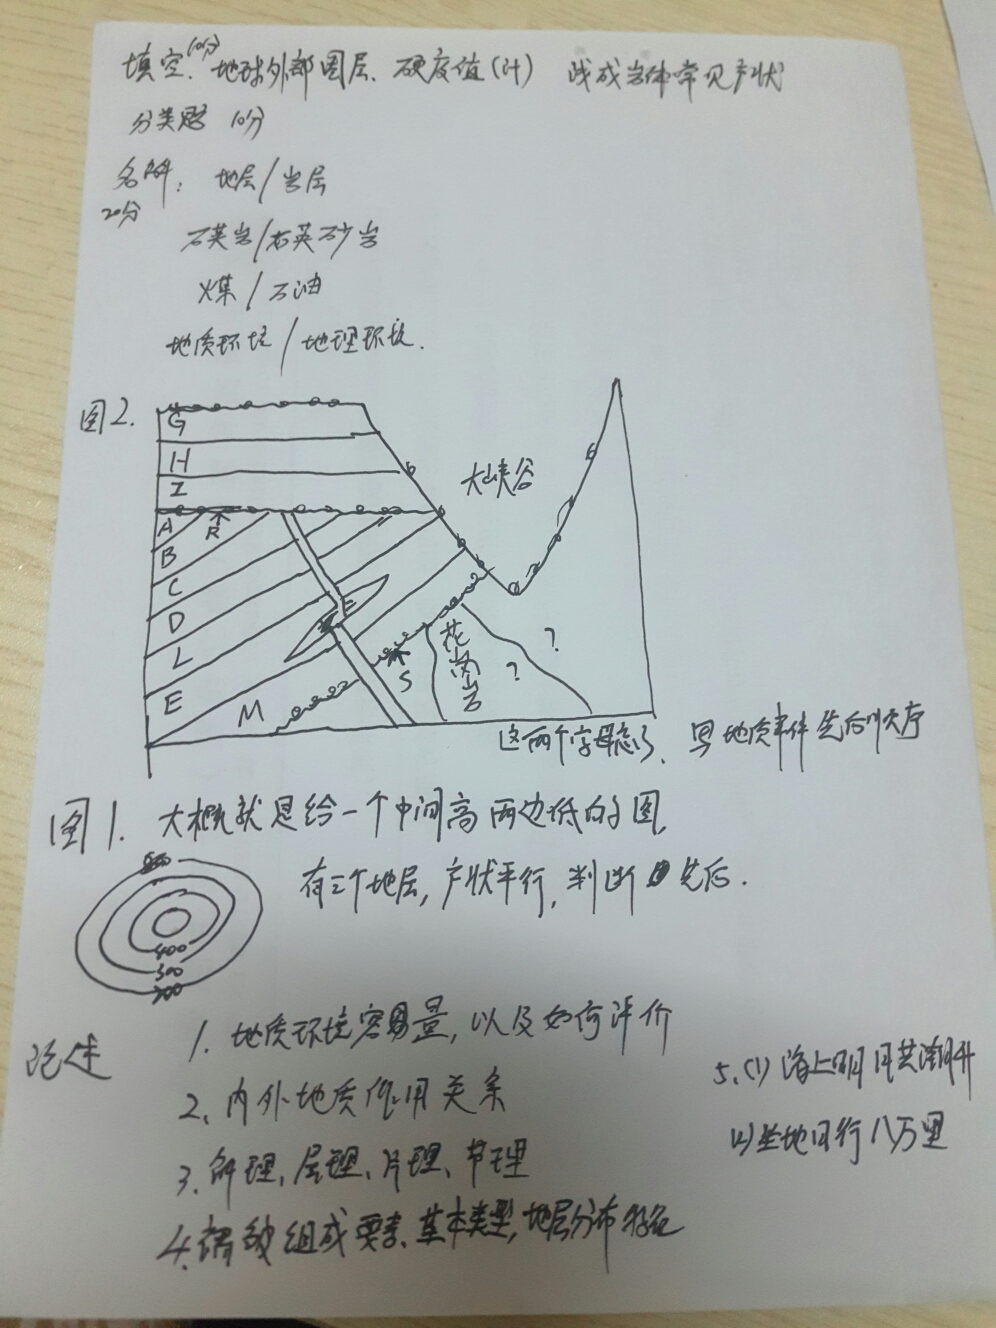 填空(10分)、地球外部圈层、硬度值(计) 浅成岩体常见产状
分类题 10分
名解: 地层/岩层
20分
石英岩/石英砂岩
煤/石油
地质环境/地理环境.
图2.
G
H
I
A R
B
C
D
L
E
M
S
花岗岩
?
?
大峡谷
这两个字母忘了、写地质事件先后顺序
图1. 大概就是给一个中间高两边低的图,
有三个地层,产状平行,判断先后.
400
300
200
论述
1. 地质环境容量,以及如何评价
2、内外地质作用关系
3、解理,层理、片理、节理
4.褶皱组成要素、基本类型,地层分布特征
5、(1)海上明月共潮升
(2)坐地日行八万里